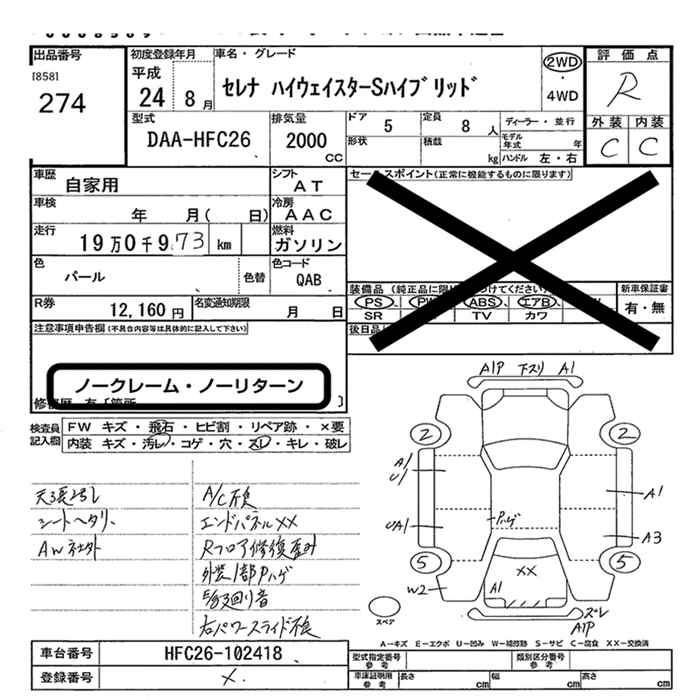 出品番号
[858]
274
初度登録年月
平成
24 8月
車名・グレード
セレナ ハイウェイスターSハイブリッド
2WD
・
4WD
評価点
R
外装 内装
C C
型式
DAA-HFC26
排気量
2000
CC
ドア
5
定員
8人
形状
積載
kg
ディーラー・並行
モデル年式 年
ハンドル 左・右
車歴
自家用
シフト
AT
車検
年 月( 日)
冷房
AAC
走行
19万0千973 km
燃料
ガソリン
色
パール
色替
色コード
QAB
R券
12,160円
名変通知期限
月 日
セールスポイント(正常に機能するものに限ります)
装備品
PS
ABS
エアB
SR
TV
カワ
新車保証書
有・無
後日品
注意事項申告欄(不具合内容等は具体的に記入して下さい)
ノークレーム・ノーリターン
検査員記入欄
FW キズ・飛石・ヒビ割・リペア跡・×要
内装 キズ・汚レ・コゲ・穴・スレ・キレ・破レ
天張汚れ
シートヘタリ
AW社外
A/C不良
エンドパネルXX
Rフロア修復歪み
外装1部Pハゲ
右パワースライド不良
A1P 下スリ A1
2 2
A1
U1
A1
Pハゲ
UA1
A3
5 5
XX
W2
A1
ズレ
A1P
スペア
A−キズ E−エクボ U−凹み W−補修跡 S−サビ C−腐食 XX−交換済
車台番号
HFC26-102418
登録番号
×
型式指定番号
参考
類別区分番号
参考
車庫証明用
参考
長さ cm
幅 cm
高さ cm